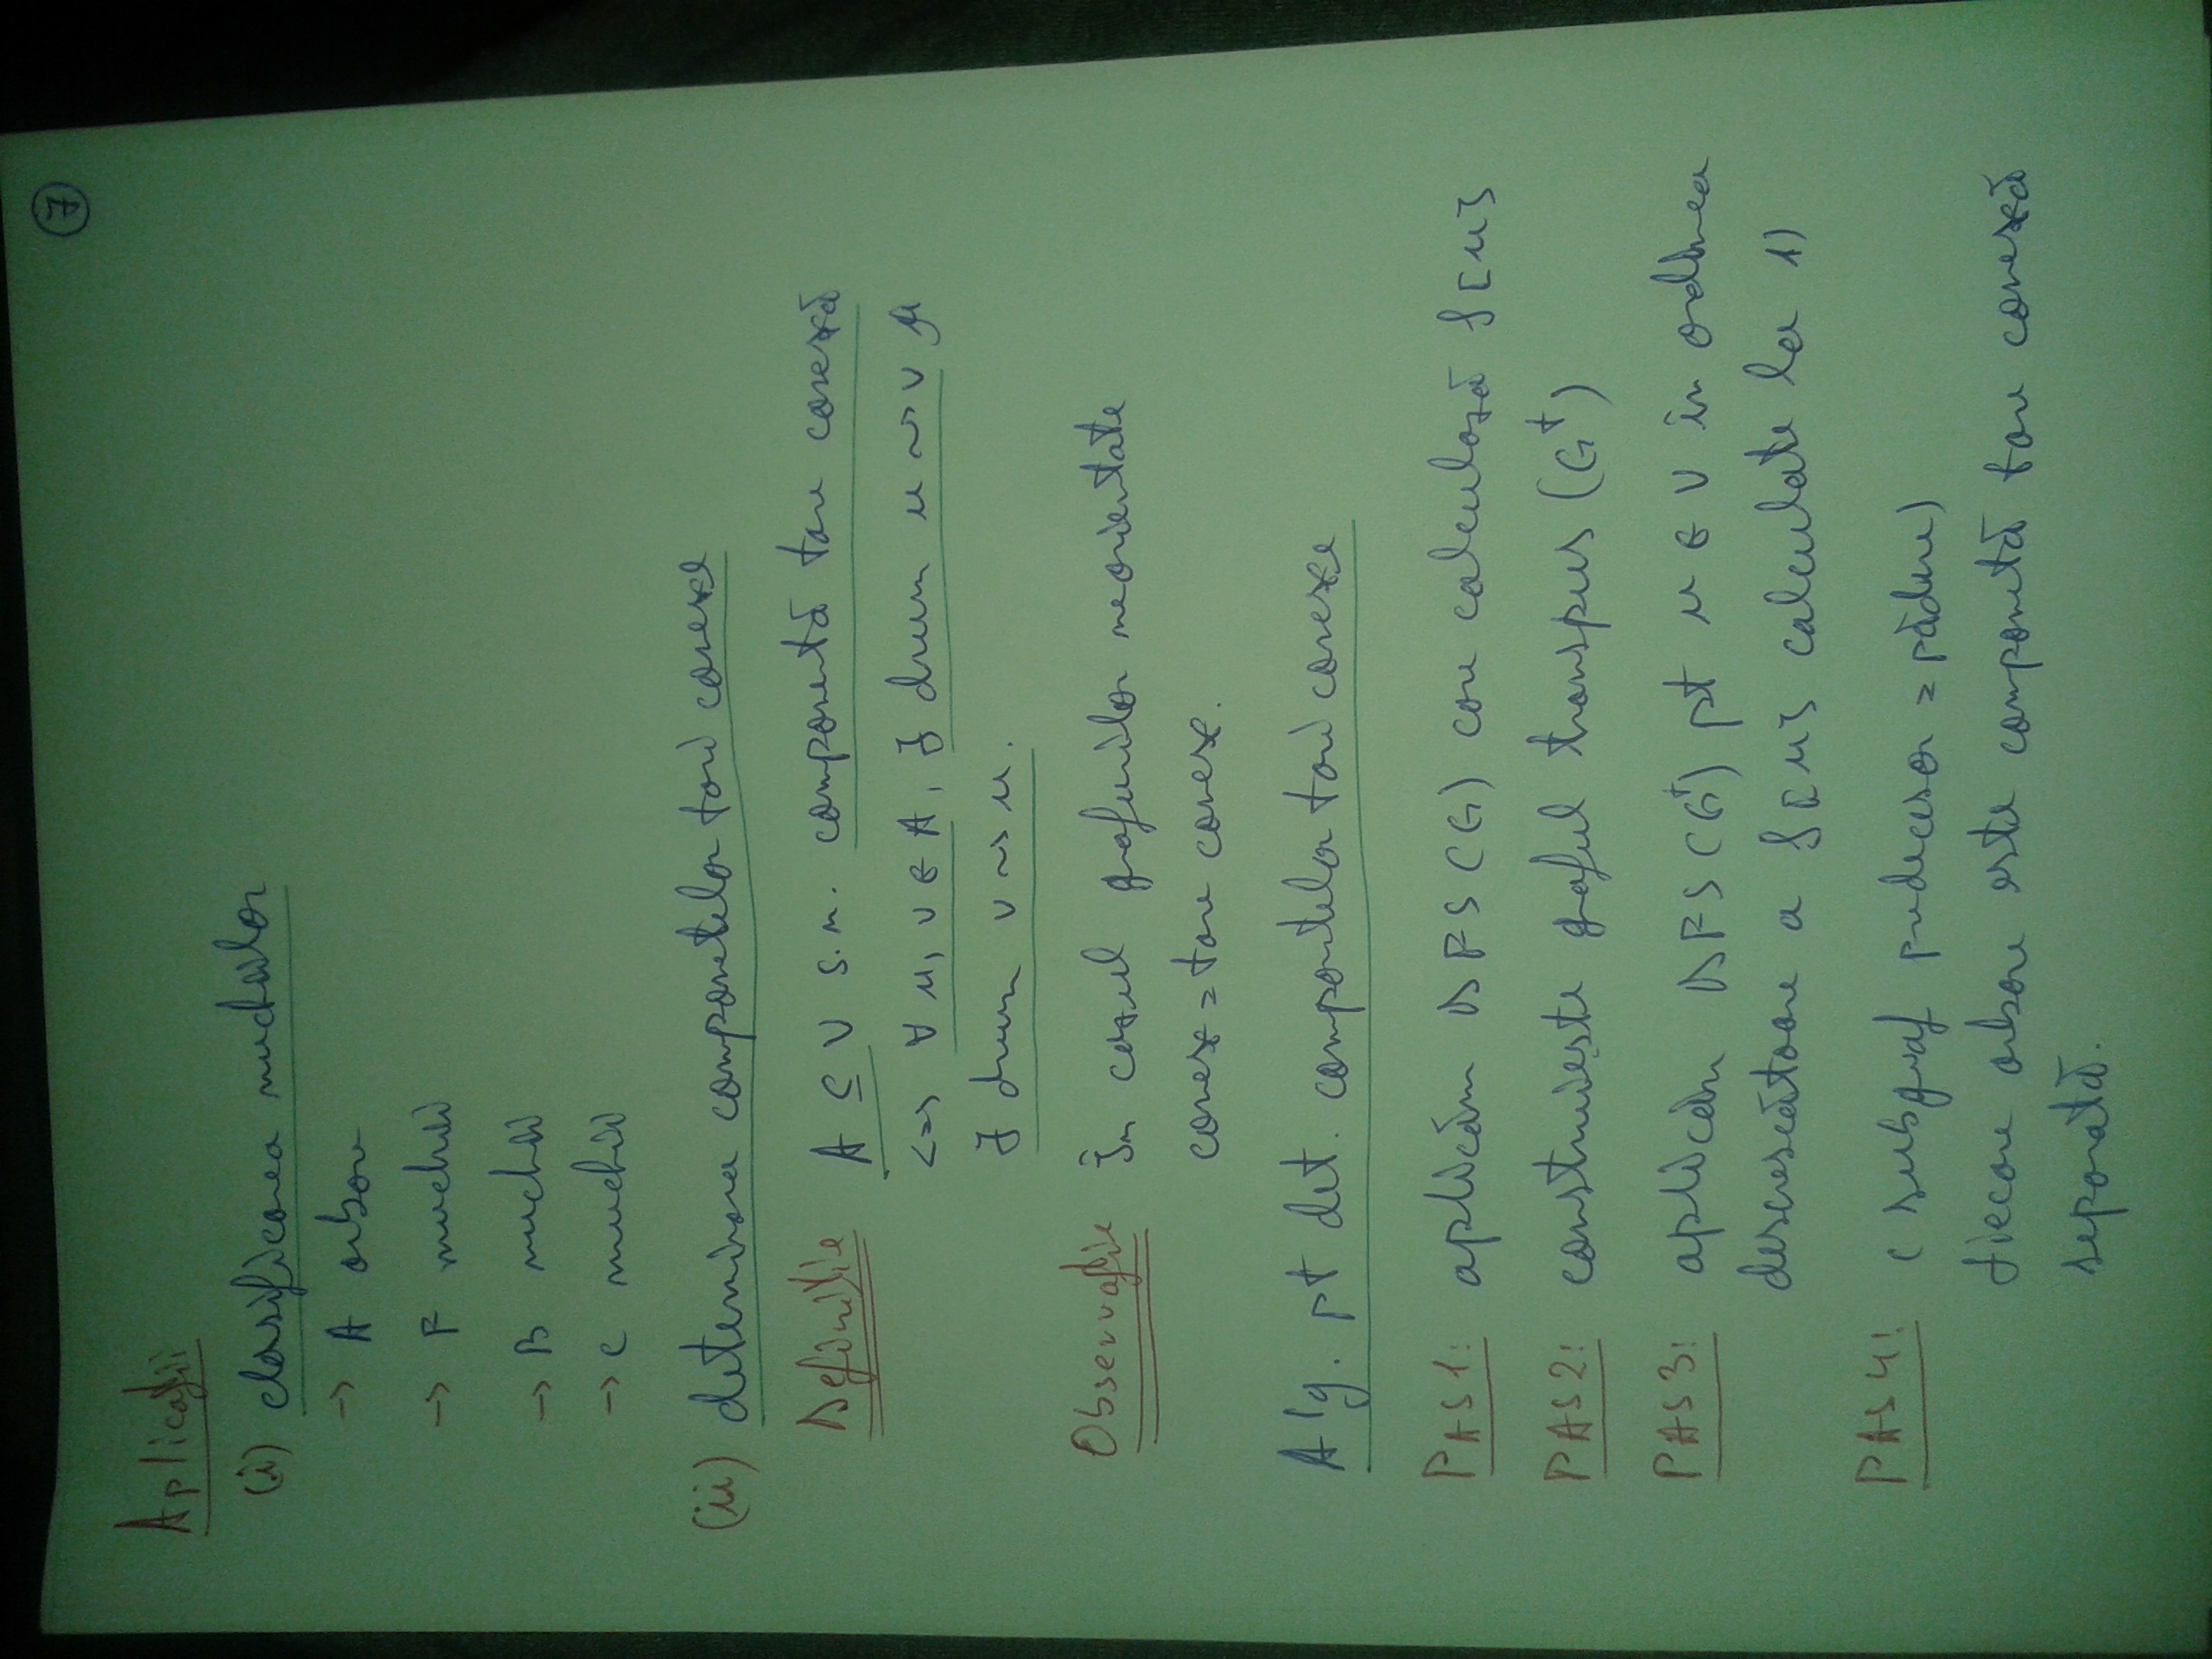 7
Aplicații
(i) clasificarea muchiilor
→ A arbore
→ F muchii
→ B muchii
→ C muchii
(ii) determinarea componentelor tari conexe
Definiție A ⊆ V s.n. componentă tare conexă
<=> ∀ u, v ∈ A, ∃ drum u ~> v și
∃ drum v ~> u.
Observație în cazul grafurilor neorientate
conex = tare conex.
Alg. pt det. componentelor tari conexe
PAS 1: aplicăm DFS(G) care calculează f[u]
PAS 2: construiește graful transpus (G^t)
PAS 3: aplicăm DFS(G^t) pt u ∈ V în ordinea
descrescătoare a f[u] calculate la 1)
PAS 4: (subgraf predecesor = pădure)
fiecare arbore este componentă tare conexă
separată.